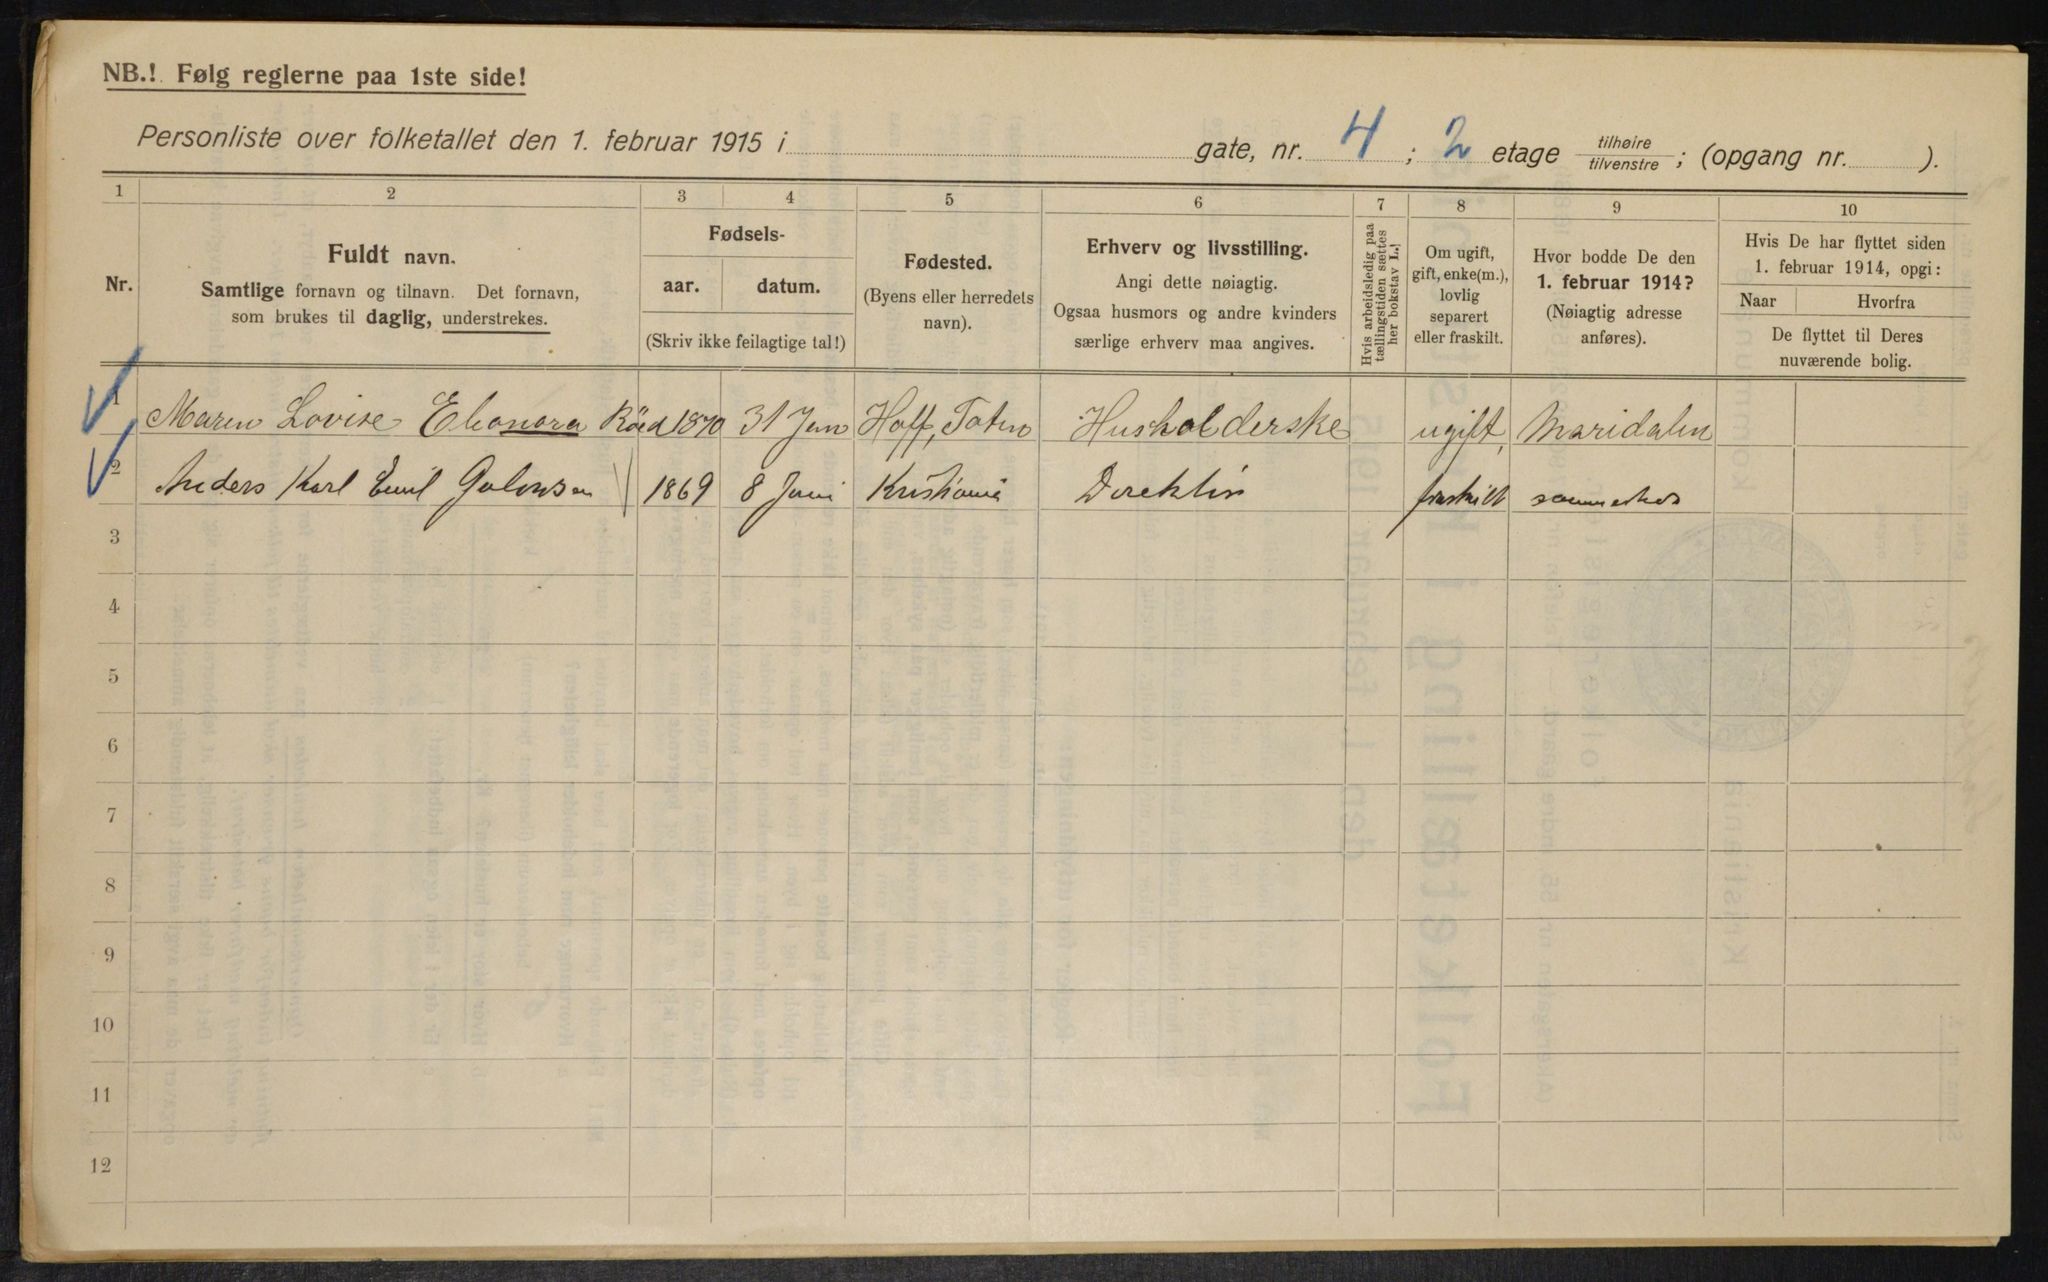 NB.! Følg reglerne paa 1ste side!
Personliste over folketallet den 1. februar 1915 i gate, nr. 4 ; 2 etage tilhøire/tilvenstre ; (opgang nr. ).
1 2 3 4 5 6 7 8 9 10
Nr.
Fuldt navn.
Samtlige fornavn og tilnavn. Det fornavn,
som brukes til daglig, understrekes.
Fødsels-
aar. datum.
(Skriv ikke feilagtige tal!)
Fødested.
(Byens eller herredets
navn).
Erhverv og livsstilling.
Angi dette nøiagtig.
Ogsaa husmors og andre kvinders
særlige erhverv maa angives.
Hvis arbeidsledig paa
tællingstiden sættes
her bokstav L.!
Om ugift,
gift, enke(m.),
lovlig
separert
eller fraskilt.
Hvor bodde De den
1. februar 1914?
(Nøiagtig adresse
anføres).
Hvis De har flyttet siden
1. februar 1914, opgi:
Naar Hvorfra
De flyttet til Deres
nuværende bolig.
1 Maren Lovise Eleonora Röed 1870 31 Jan Hoff, Toten Husholderske ugift, Maridalen
2 Anders Karl Emil 1869 8 Juni Kristiania Direktör fraskilt sammesteds
3
4
5
6
7
8
9
10
11
12